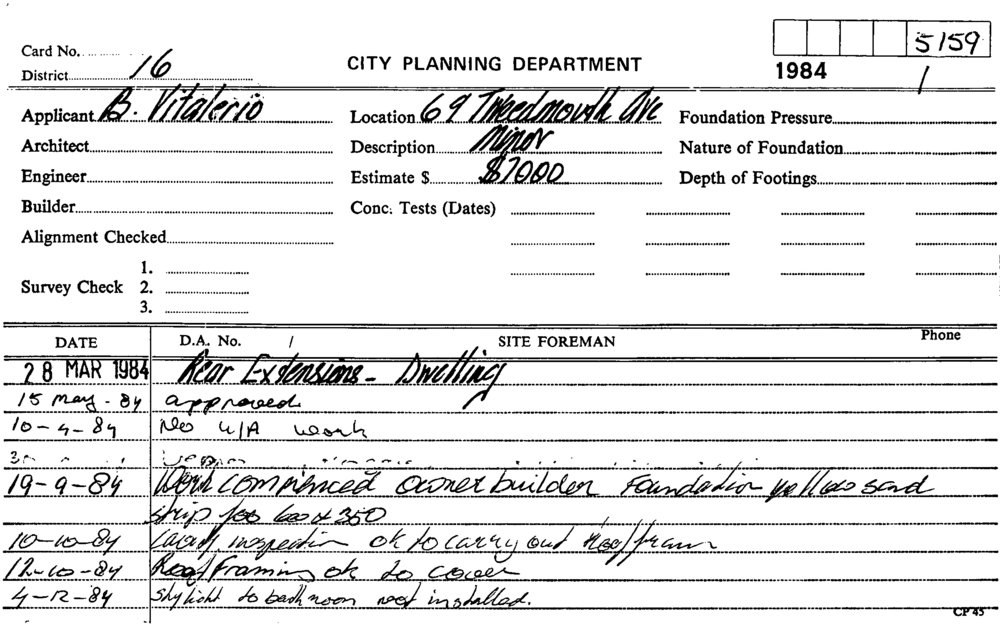 Card No.
5159
District 16
CITY PLANNING DEPARTMENT
1984 /
Applicant B. Vitalerio
Location 69 Tweedmouth Ave
Foundation Pressure
Architect
Description Minor
Nature of Foundation
Engineer
Estimate $ $7000
Depth of Footings
Builder
Conc. Tests (Dates)
Alignment Checked
Survey Check
1.
2.
3.
DATE D.A. No. / SITE FOREMAN Phone
28 MAR 1984 Rear Extensions - Dwelling
15 May - 84 approved
10-4-84 No U/A work
19-9-84 Work commenced owner builder Foundation yellow sand
strip 350
10-10-84 inspection ok to carry out Roof fram
12-10-84 Roof Framing ok to cover
4-12-84 Skylight to bathroom not installed.
CP 45